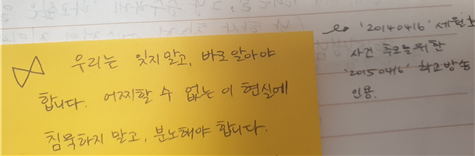 우리는 잊지말고, 바로알아야
합니다. 어찌할 수 없는 이 현실에
침묵하지 말고, 분노해야 합니다.
'20140416' 세월호
사건 추모를 위한
'20150416' 학교방송
인용.